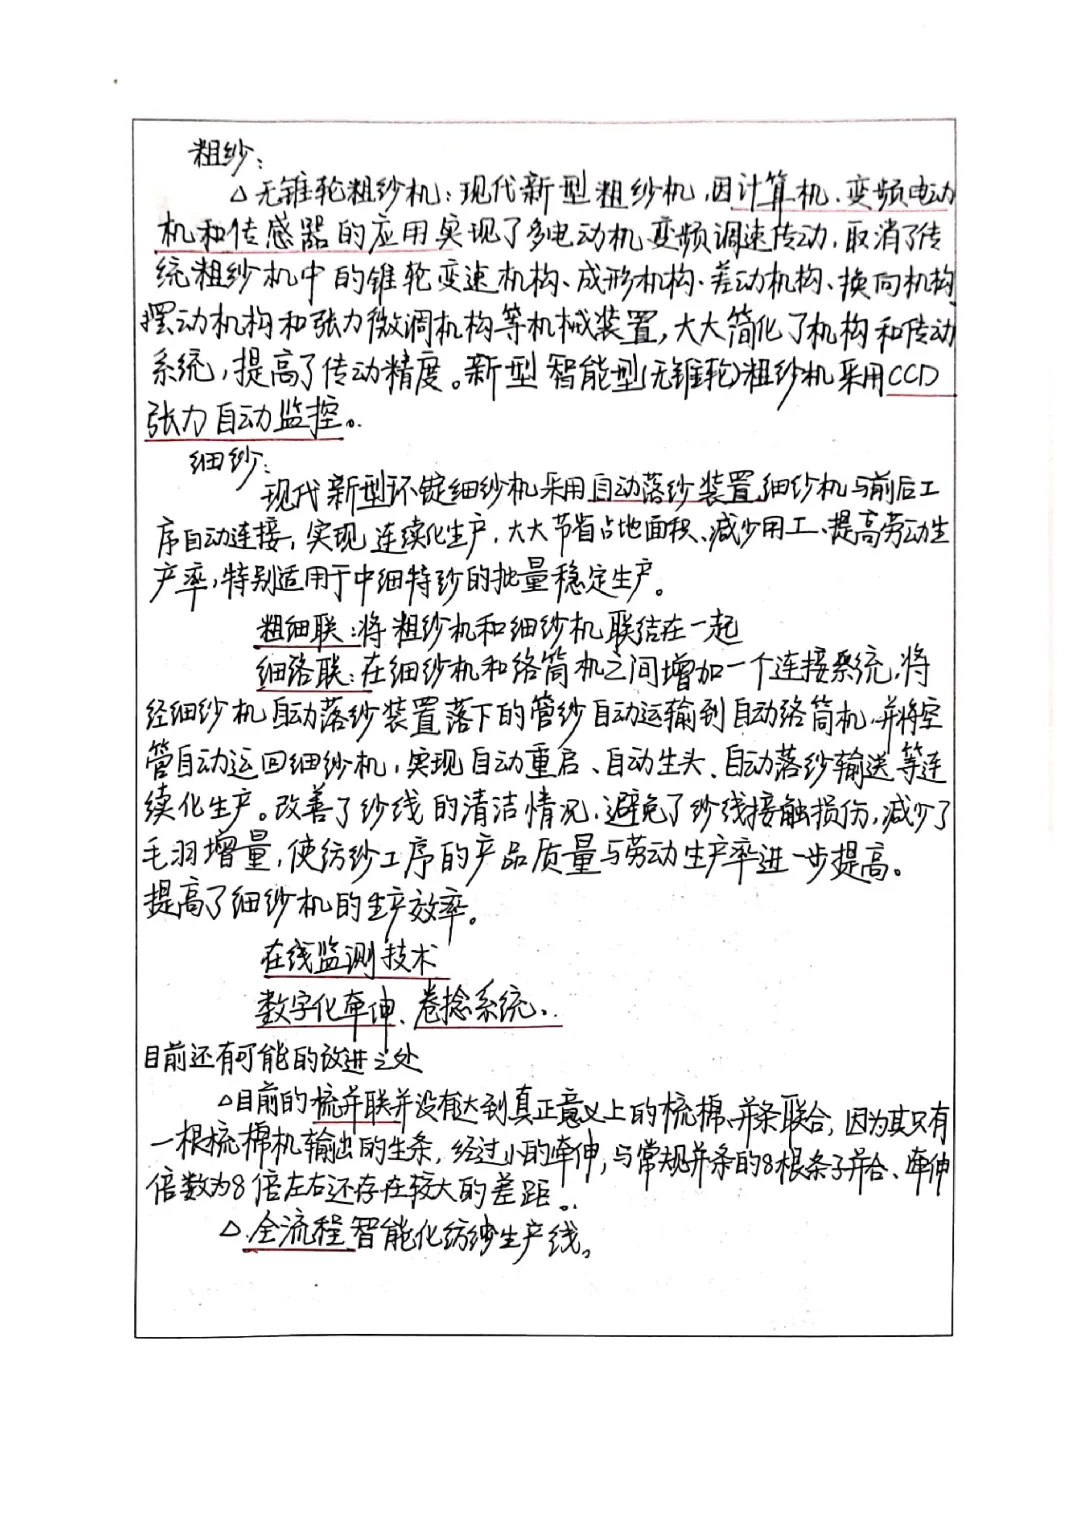 粗纱：
△无锥轮粗纱机：现代新型粗纱机，因计算机、变频电动
机和传感器的应用实现了多电动机变频调速传动，取消了传
统粗纱机中的锥轮变速机构、成形机构、差动机构、换向机构、
摆动机构和张力微调机构等机械装置，大大简化了机构和传动
系统，提高了传动精度。新型智能型(无锥轮)粗纱机采用CCD
张力自动监控。
细纱：
现代新型环锭细纱机采用自动落纱装置，细纱机与前后工
序自动连接，实现连续化生产，大大节省占地面积、减少用工、提高劳动生
产率，特别适用于中细特纱的批量稳定生产。
粗细联：将粗纱机和细纱机联结在一起
细络联：在细纱机和络筒机之间增加一个连接系统，将
经细纱机自动落纱装置落下的管纱自动运输到自动络筒机，并将空
管自动运回细纱机，实现自动重启、自动生头、自动落纱输送等连
续化生产。改善了纱线的清洁情况，避免了纱线接触损伤，减少了
毛羽增量，使纺纱工序的产品质量与劳动生产率进一步提高。
提高了细纱机的生产效率。
在线监测技术
数字化牵伸、卷捻系统。
目前还有可能的改进之处
△目前的梳并联并没有达到真正意义上的梳棉、并条联合，因为其只有
一根梳棉机输出的生条，经过小的牵伸，与常规并条的8根条子并合、牵伸
倍数为8倍左右还存在较大的差距。
△全流程智能化纺纱生产线。